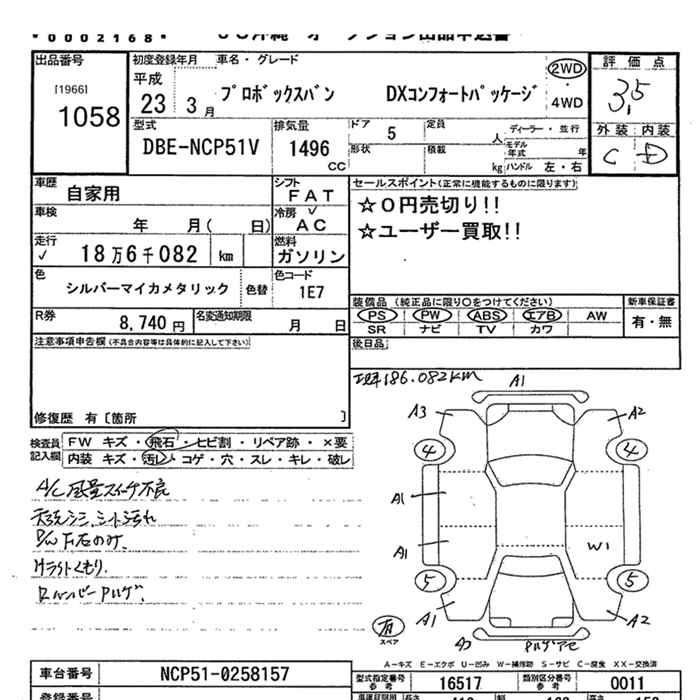 *0002168*
出品番号
[1966]
1058
初度登録年月
平成
23 3月
車名・グレード
プロボックスバン DXコンフォートパッケージ
2WD
・
4WD
評価点
3,5
外装 内装
C D
型式
DBE-NCP51V
排気量
1496
CC
ドア
5
定員
人
ディーラー・並行
形状
積載
kg
モデル年式
年
ハンドル 左・右
車歴
自家用
シフト
FAT
車検
年 月( 日)
冷房
AC
走行
✓ 18万6千082 km
燃料
ガソリン
色
シルバーマイカメタリック
色替
色コード
1E7
R券
8,740円
名変通知期限
月 日
セールスポイント(正常に機能するものに限ります)
☆0円売切り!!
☆ユーザー買取!!
装備品 (純正品に限り○をつけてください)
PS PW ABS エアB AW
SR ナビ TV カワ
新車保証書
有・無
後日品
注意事項申告欄(不具合内容等は具体的に記入して下さい)
修復歴 有〔箇所 〕
検査員記入欄
FW キズ・飛石・ヒビ割・リペア跡・×要
内装 キズ・汚レ・コゲ・穴・スレ・キレ・破レ
A/C風量スイッチ不良
天張シミ、シート汚れ
P/W F左右のみ、
Hライトくもり、
186,082km
A1
A3
A2
4
4
A1
A1
W1
5
5
A1
A2
有
スペア
A-キズ E-エクボ U-凹み W-補修跡 S-サビ C-腐食 XX-交換済
車台番号
NCP51-0258157
型式指定番号
参考
16517
類別区分番号
参考
0011